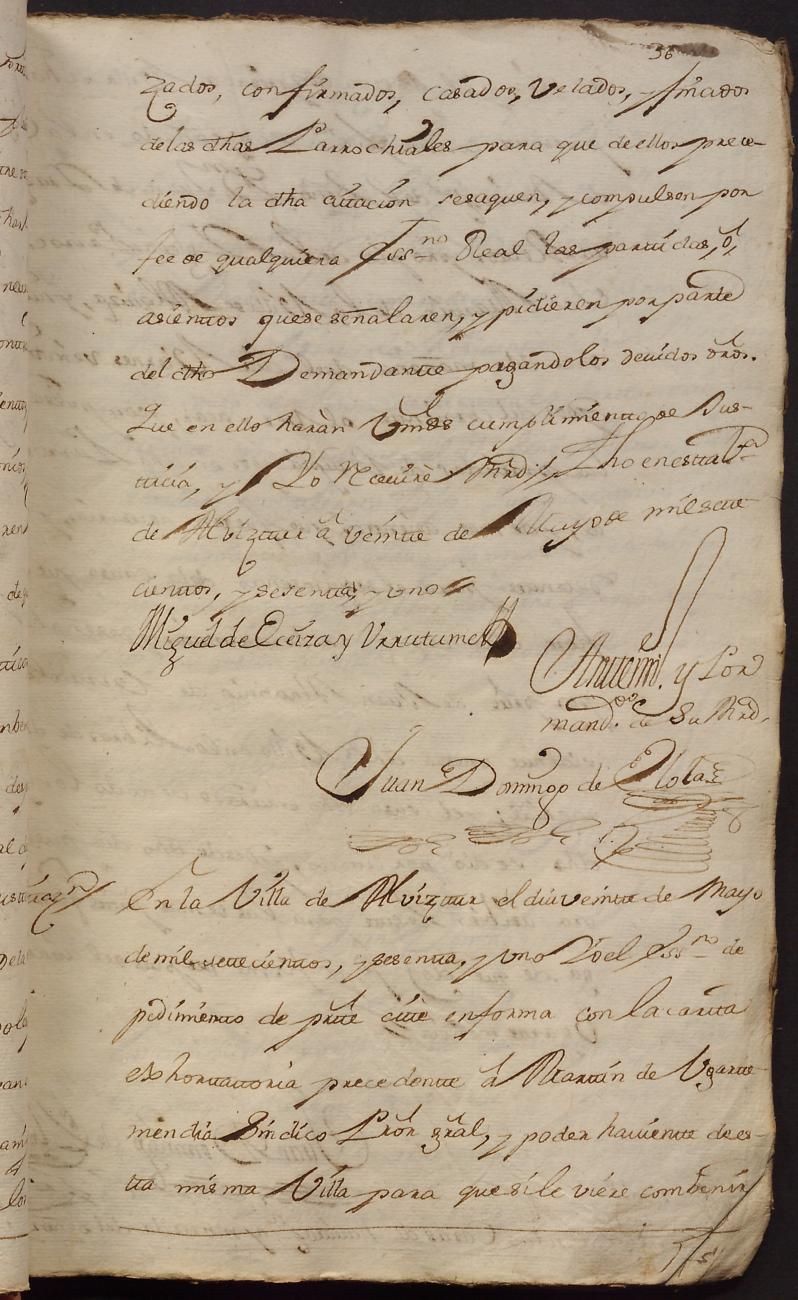 56
zados, confirmados, casados, velados, y finados
de las dhas Parrochiales para que de ellos prece-
diendo la dha citación se saquen, y compulsen por
fee de qualquiera Ess.no Real las partidas, ó,
asientos que se señalaren, y pidieren por parte
del dho Demandante pagandolos devidos dros.
Que en ello haràn Vmds cumplimiento de Jus-
ticia, y Yo Reciviré Mrd; fho en esta V.a
de Alvizttur á veinte de Mayo de mil sette
cientos, y sesenta, y uno
Miguel de Eceiza y Urrutume
Antemi. y Por
mand.do de Su Mrd,
Juan Domingo de
En la Villa de Alvizttur el dia veintte de Mayo
de mil settecientos, y sesenta, y uno Yo el Ess.no de
pedimiento de partte citté en forma con la cartta
exhorttattoria precedentte á Martín de Ugartte
mendia Síndico Prõr gral, y poder havientte de es-
tta misma Villa para que si le viere combenir